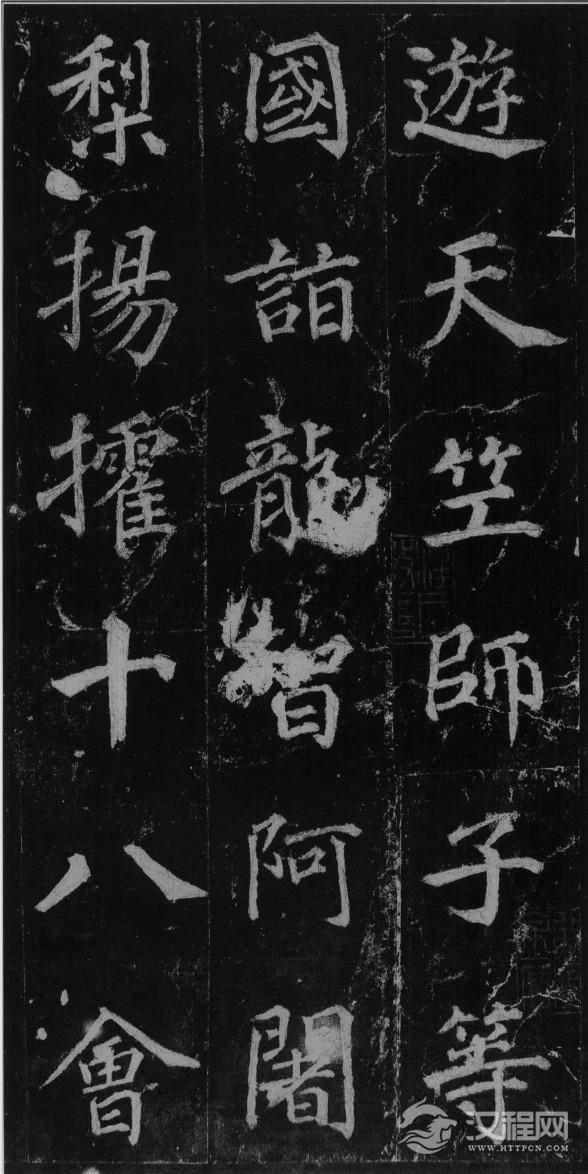 遊天竺師子等
國詣龍智阿闍
梨揚攉十八會
汉程网
WWW.HTTPCN.COM